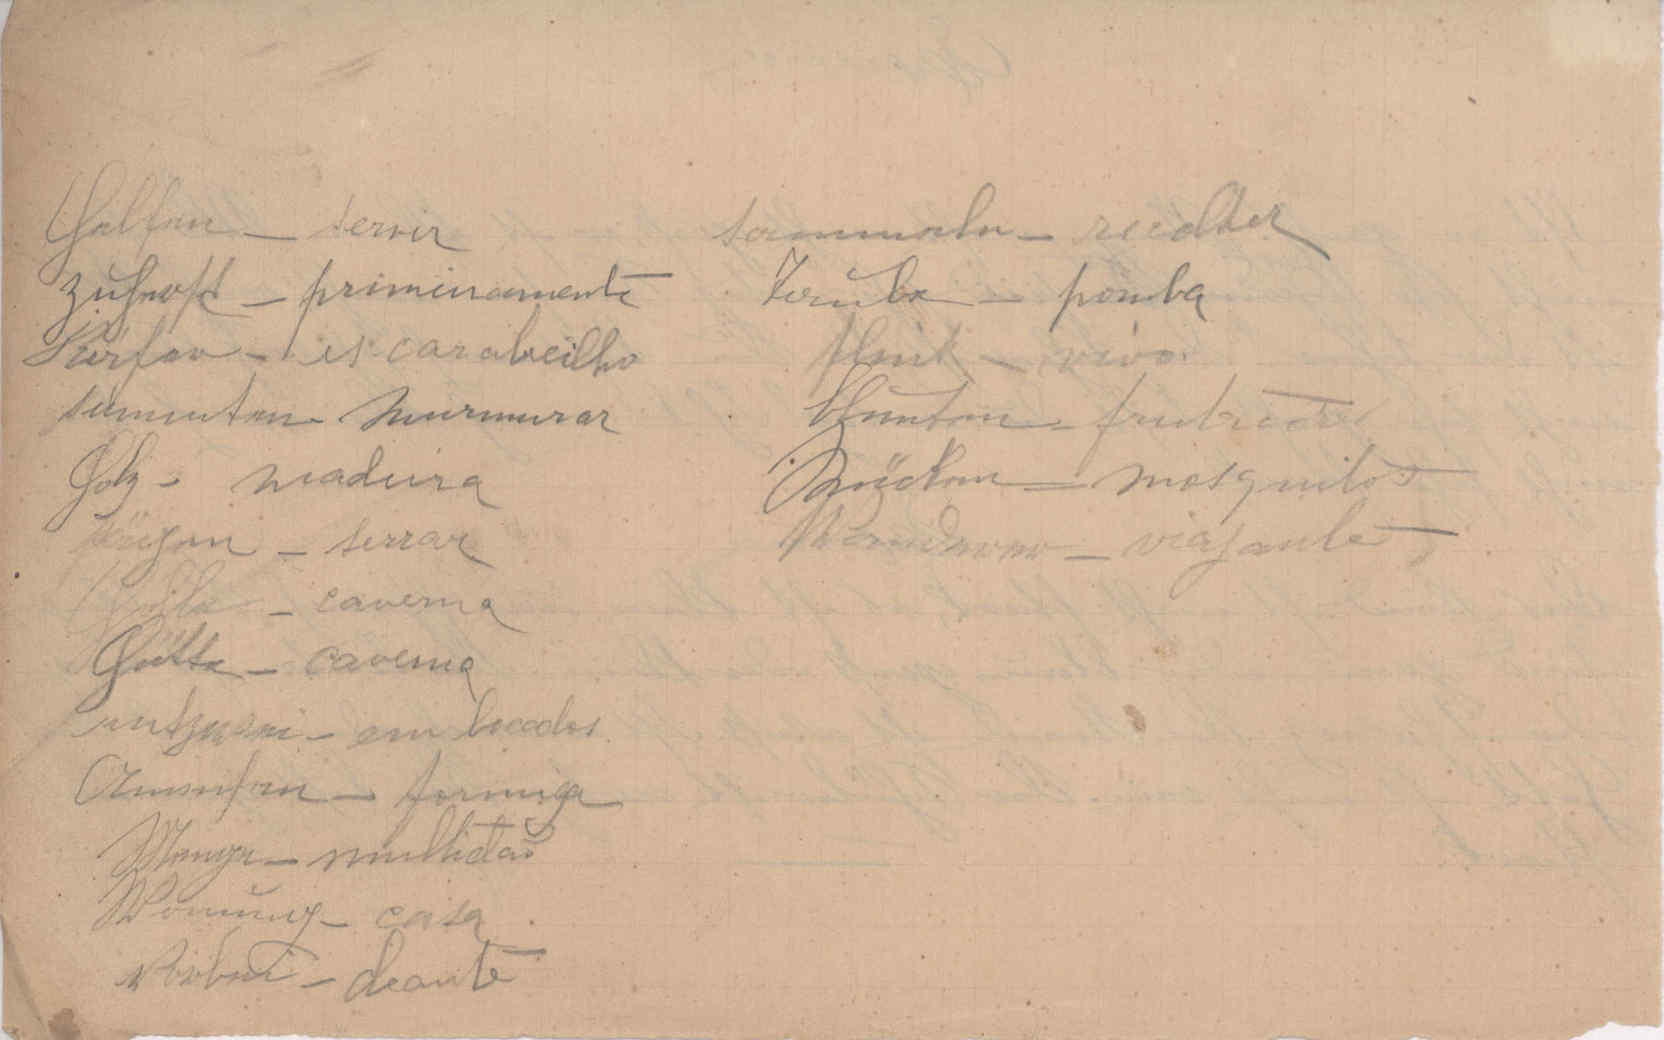 helfen – servir
zuhorst – primeiramente
Käfer – escarabeilho
summten – murmurar
Holz – madeira
sägen – serrar
Höhle – caverna
Hütte – caverna
entzwei – em bocados
Ameisen – formiga
Menge – multidão
Wonung – casa
vorbei – deante
sammeln – recolher
Taube – pomba
flink – vivo
blühten
Mücken – mosquitos
Wanderer – viajante